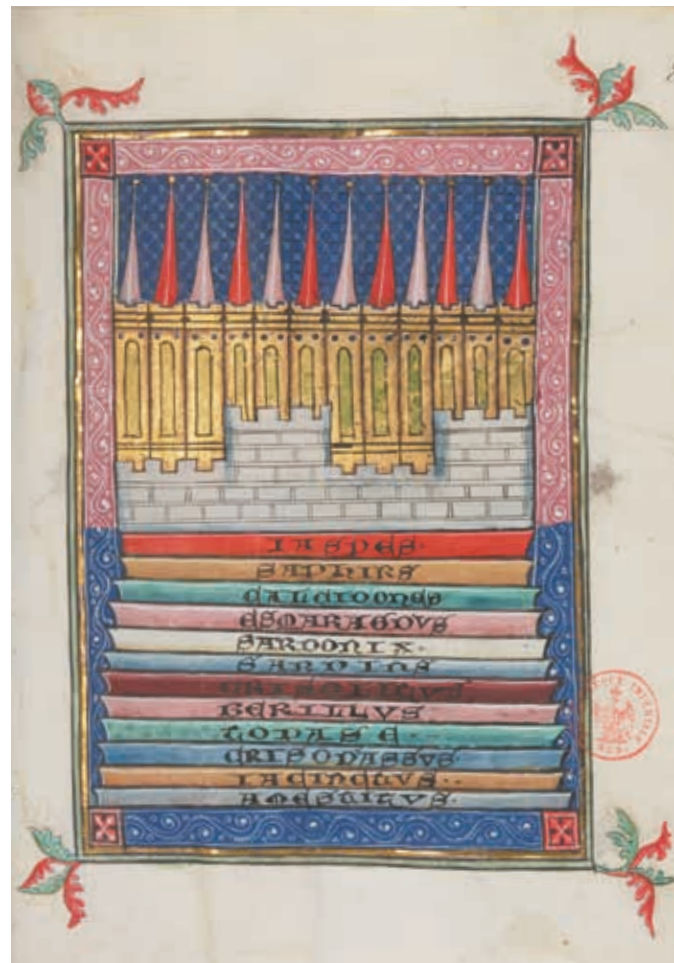 IASPES·
SAPHIRS
CALCIDONES
ESMARAGDVS
SARDONIX·
SARDINS
CRISOLITVS
BERILLVS
TOPASE··
CRISOPASSVS·
IACINCTVS··
AMESTITVS·